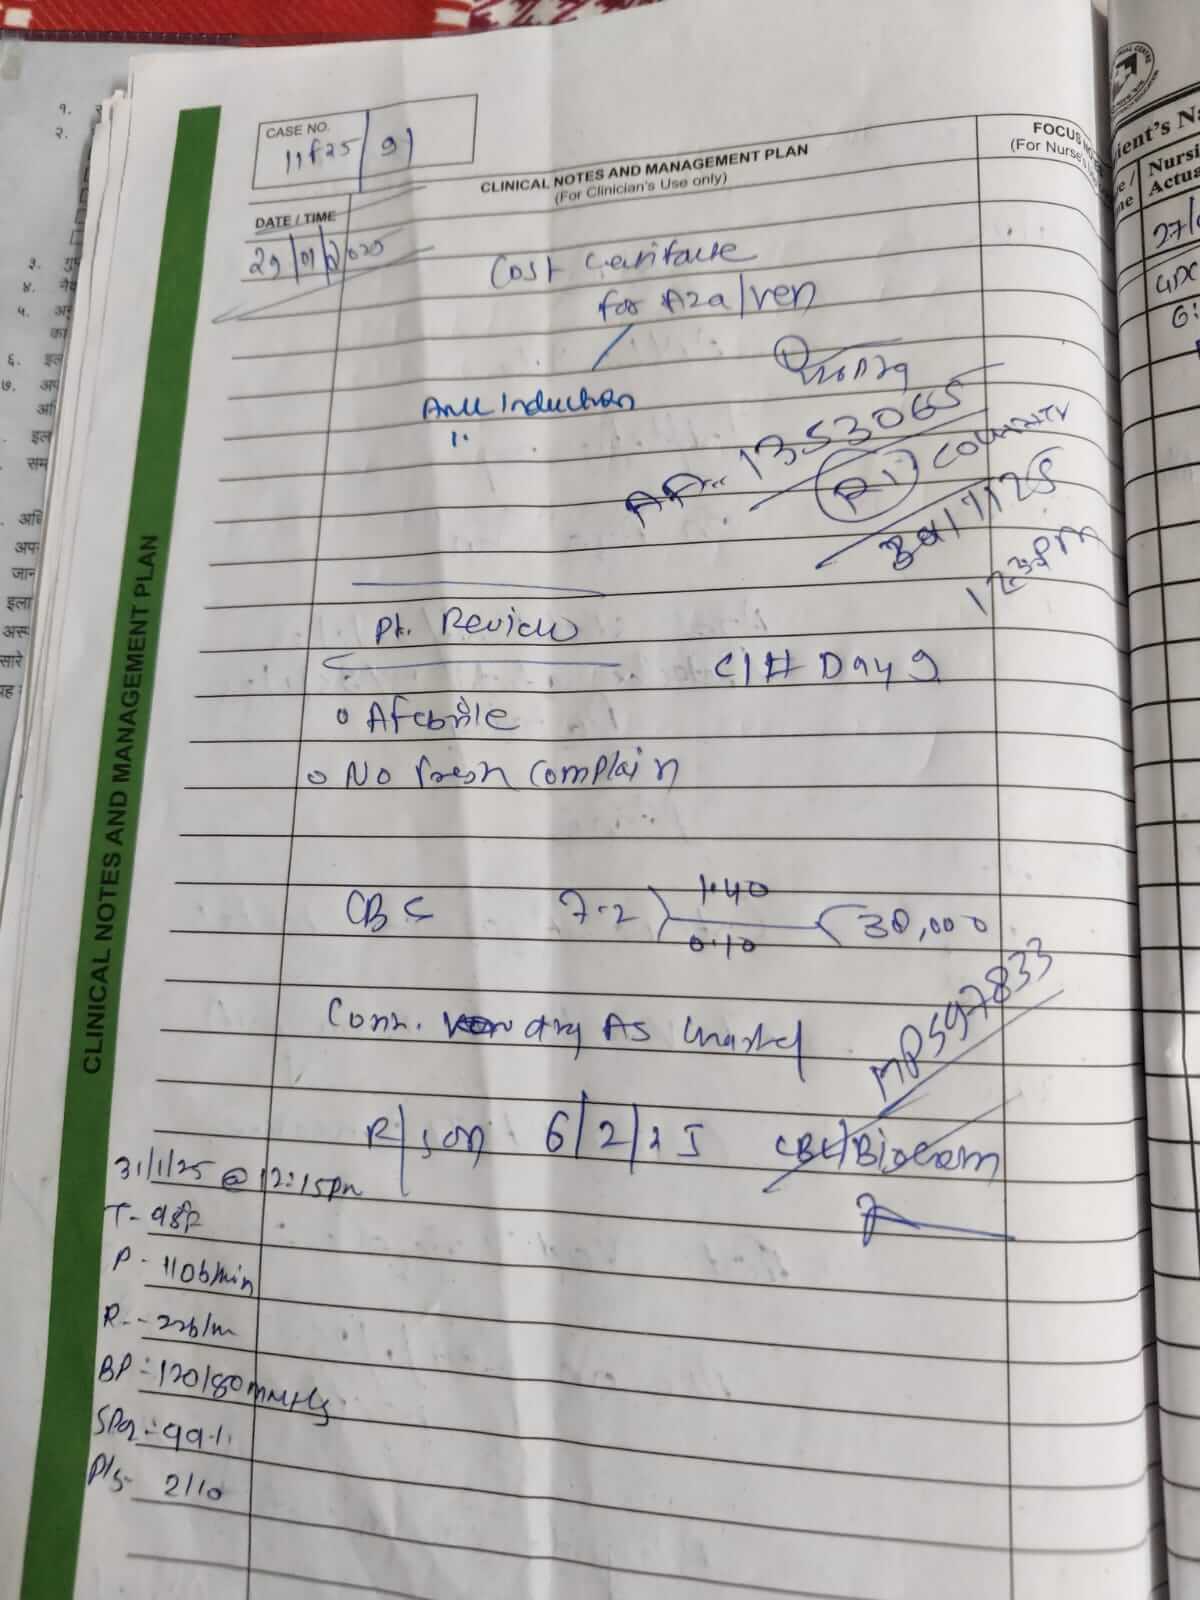 CASE NO.
11825/91
CLINICAL NOTES AND MANAGEMENT PLAN
(For Clinician's Use only)
FOCUS
(For Nurse's
DATE / TIME
29/01/2025
Cost
for Aza/ven
AML Induction
AA:- 1353065
R1 Counter
30/1/25
Pt. Review
C1# Day 9
o Afebrile
o No fresh Complain
CBC 7.2 1.40 30,000
0.10
MP597833
Conn. As
R/s on 6/2/25 CBC/Biochem
31/1/25 @ 12:15pm
T- 98F
P- 110b/min
R- 22b/m
BP- 120/80mmHg
SPO2- 99%
P/S- 2/10
CLINICAL NOTES AND MANAGEMENT PLAN
ient's Na
Nursi
Actua
27/